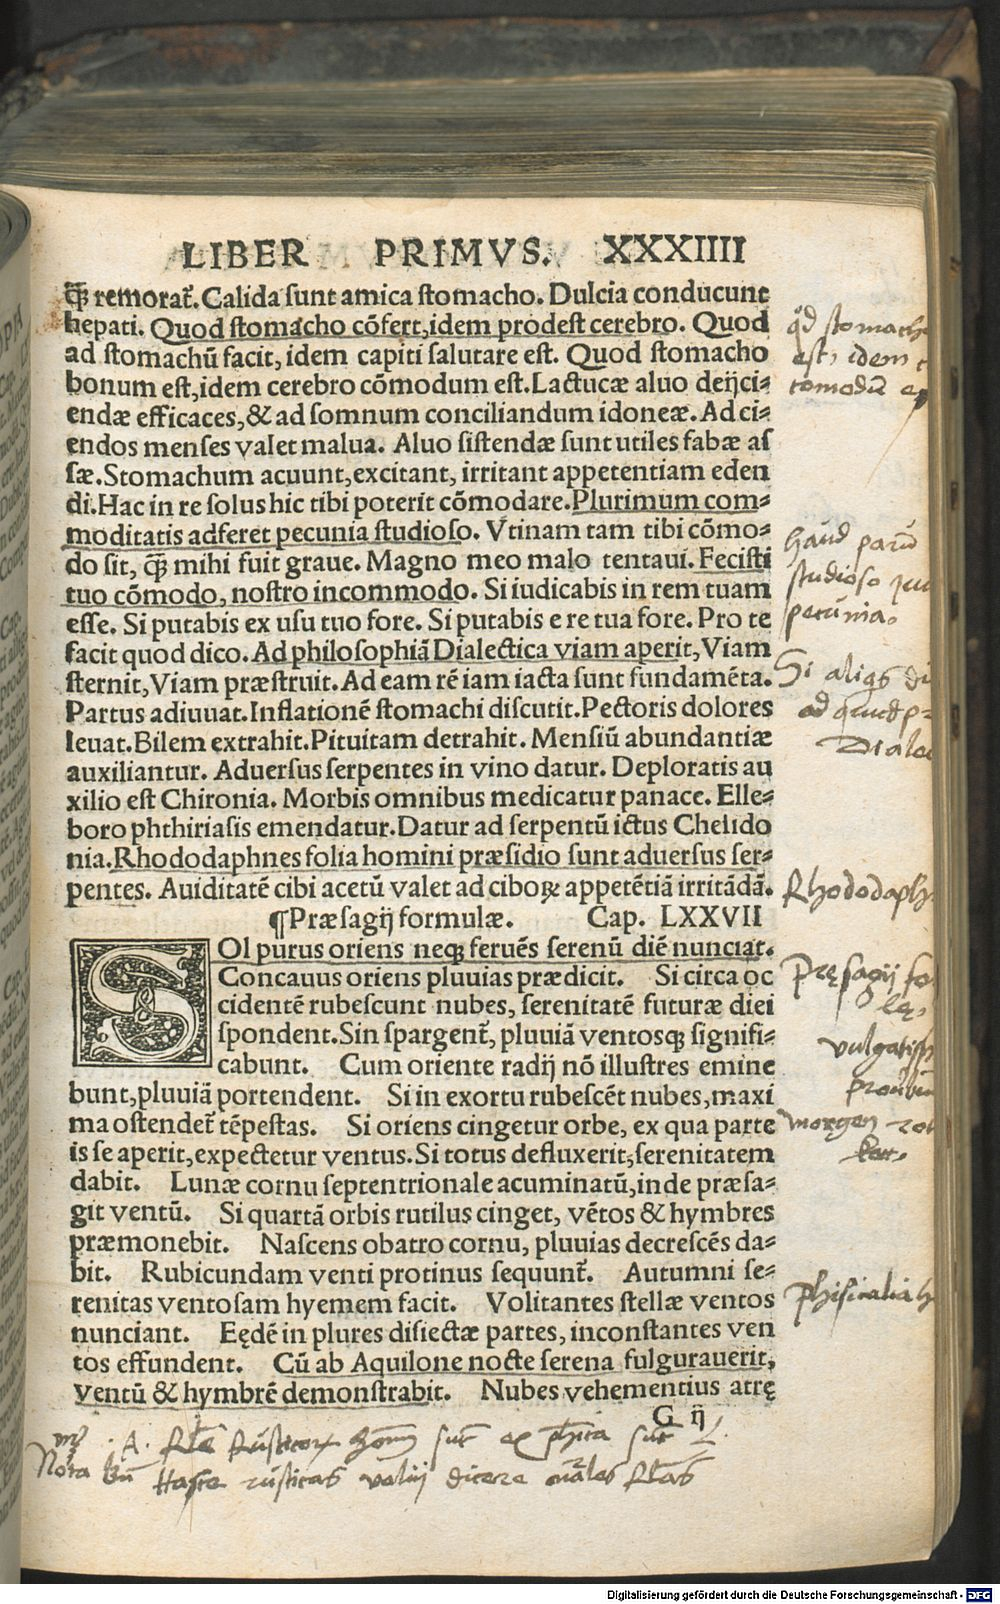 LIBER PRIMVS. XXXIIII
q̄ꝫ remorat᷑. Calida sunt amica stomacho. Dulcia conducunt
hepati. Quod stomacho cōfert, idem prodest cerebro. Quod
ad stomachū facit, idem capiti salutare est. Quod stomacho
bonum est, idem cerebro cōmodum est. Lactucæ aluo deijci⸗
endæ efficaces, & ad somnum conciliandum idoneæ. Ad ci⸗
endos menses valet malua. Aluo sistendæ sunt utiles fabæ as
sæ. Stomachum acuunt, excitant, irritant appetentiam eden
di. Hac in re solus hic tibi poterit cōmodare. Plurimum com⸗
moditatis adferet pecunia studioso. Vtinam tam tibi cōmo⸗
do sit, q̄ꝫ mihi fuit graue. Magno meo malo tentaui. Fecisti
tuo cōmodo, nostro incommodo. Si iudicabis in rem tuam
esse. Si putabis ex usu tuo fore. Si putabis e re tua fore. Pro te
facit quod dico. Ad philosophiā Dialectica viam aperit, Viam
sternit, Viam præstruit. Ad eam rē iam iacta sunt fundamēta.
Partus adiuuat. Inflationē stomachi discutit. Pectoris dolores
leuat. Bilem extrahit. Pituitam detrahit. Mensiū abundantiæ
auxiliantur. Aduersus serpentes in vino datur. Deploratis au
xilio est Chironia. Morbis omnibus medicatur panace. Elle⸗
boro phthiriasis emendatur. Datur ad serpentū ictus Chelido
nia. Rhododaphnes folia homini præsidio sunt aduersus ser⸗
pentes. Auiditatē cibi acetū valet ad ciboꝝ appetētiā irritādā.
¶Præsagij formulæ. Cap. LXXVII
SOl purus oriens neqꝫ feruēs serenū diē nunciat.
Concauus oriens pluuias prædicit. Si circa oc
cidentē rubescunt nubes, serenitatē futuræ diei
spondent. Sin spargent᷑, pluuiā ventosqꝫ signifi⸗
cabunt. Cum oriente radij nō illustres emine
bunt, pluuiā portendent. Si in exortu rubescēt nubes, maxi
ma ostendet᷑ tēpestas. Si oriens cingetur orbe, ex qua parte
is se aperit, expectetur ventus. Si totus defluxerit, serenitatem
dabit. Lunæ cornu septentrionale acuminatū, inde præsa⸗
git ventū. Si quartā orbis rutilus cinget, vētos & hymbres
præmonebit. Nascens obatro cornu, pluuias decrescēs da⸗
bit. Rubicundam venti protinus sequunt᷑. Autumni se⸗
renitas ventosam hyemem facit. Volitantes stellæ ventos
nunciant. Eędē in plures disiectæ partes, inconstantes ven
tos effundent. Cū ab Aquilone nocte serena fulgurauerit,
ventū & hymbrē demonstrabit. Nubes vehementius atrę
G ij
qd stomach
est, idem
comodū
haud parū
studioso
pecunia.
Si aliqs
ad
Diale
Rhododaph
Pręsagij fo
lę.
vulgatis
prou
morgen rot
phisicalia
Nota
rusticas dicere
Digitalisierung gefördert durch die Deutsche Forschungsgemeinschaft - DFG